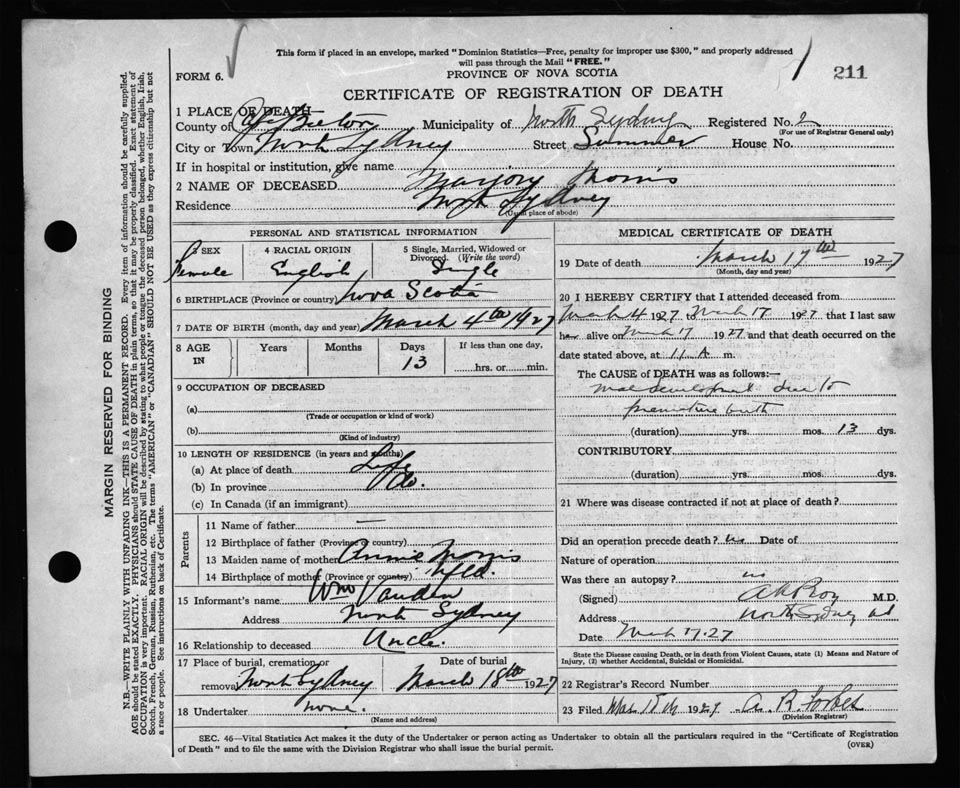 This form if placed in an envelope, marked "Dominion Statistics—Free, penalty for improper use $300," and properly addressed
will pass through the Mail "FREE."
FORM 6.
PROVINCE OF NOVA SCOTIA
211
CERTIFICATE OF REGISTRATION OF DEATH
1 PLACE OF DEATH—
County of Cape Breton Municipality of North Sydney Registered No. 2
(For use of Registrar General only)
City or Town North Sydney Street Summer House No.
If in hospital or institution, give name
2 NAME OF DECEASED Marjory Morris
Residence North Sydney
(Usual place of abode)
PERSONAL AND STATISTICAL INFORMATION
3 SEX Female
4 RACIAL ORIGIN English
5 Single, Married, Widowed or Divorced. (Write the word) Single
6 BIRTHPLACE (Province or country) Nova Scotia
7 DATE OF BIRTH (month, day and year) March 4th 1927
8 AGE IN Years Months Days 13 If less than one day, hrs. or min.
9 OCCUPATION OF DECEASED
(a)
(Trade or occupation or kind of work)
(b)
(Kind of industry)
10 LENGTH OF RESIDENCE (in years and months)
(a) At place of death Life
(b) In province Do.
(c) In Canada (if an immigrant)
Parents
11 Name of father —
12 Birthplace of father (Province or country)
13 Maiden name of mother Annie Morris
14 Birthplace of mother (Province or country) Nfld.
15 Informant's name Wm
Address North Sydney
16 Relationship to deceased Uncle.
17 Place of burial, cremation or removal North Sydney
Date of burial March 18th 1927
18 Undertaker none.
(Name and address)
MEDICAL CERTIFICATE OF DEATH
19 Date of death March 17th 1927
(Month, day and year)
20 I HEREBY CERTIFY that I attended deceased from
March 4 1927 March 17 1927 that I last saw
her alive on March 17 1927 and that death occurred on the
date stated above, at 11 A m.
The CAUSE of DEATH was as follows:—
Maldevelopment due to
premature birth
(duration) yrs. mos. 13 dys.
CONTRIBUTORY
(duration) yrs. mos. dys.
21 Where was disease contracted if not at place of death?
Did an operation precede death? no Date of
Nature of operation
Was there an autopsy? no
(Signed) M.D.
Address North Sydney
Date March 17.27
State the Disease causing Death, or in death from Violent Causes, state (1) Means and Nature of
Injury, (2) whether Accidental, Suicidal or Homicidal.
22 Registrar's Record Number
23 Filed Mar 1927 A. R. Forbes
(Division Registrar)
SEC. 46—Vital Statistics Act makes it the duty of the Undertaker or person acting as Undertaker to obtain all the particulars required in the "Certificate of Registration
of Death" and to file the same with the Division Registrar who shall issue the burial permit.
(OVER)
MARGIN RESERVED FOR BINDING
N.B.—WRITE PLAINLY WITH UNFADING INK—THIS IS A PERMANENT RECORD. Every item of information should be carefully supplied.
AGE should be stated EXACTLY. PHYSICIANS should STATE CAUSE OF DEATH in plain terms, so that it may be properly classified. Exact statement of
OCCUPATION is very important. RACIAL ORIGIN will be described by stating to what people or tongue the deceased person belonged, whether English, Irish,
Scotch, French, German, Russian, Ruthenian, etc. The terms "AMERICAN" or "CANADIAN" SHOULD NOT BE USED as they express citizenship but not
a race or people. See instructions on back of Certificate.